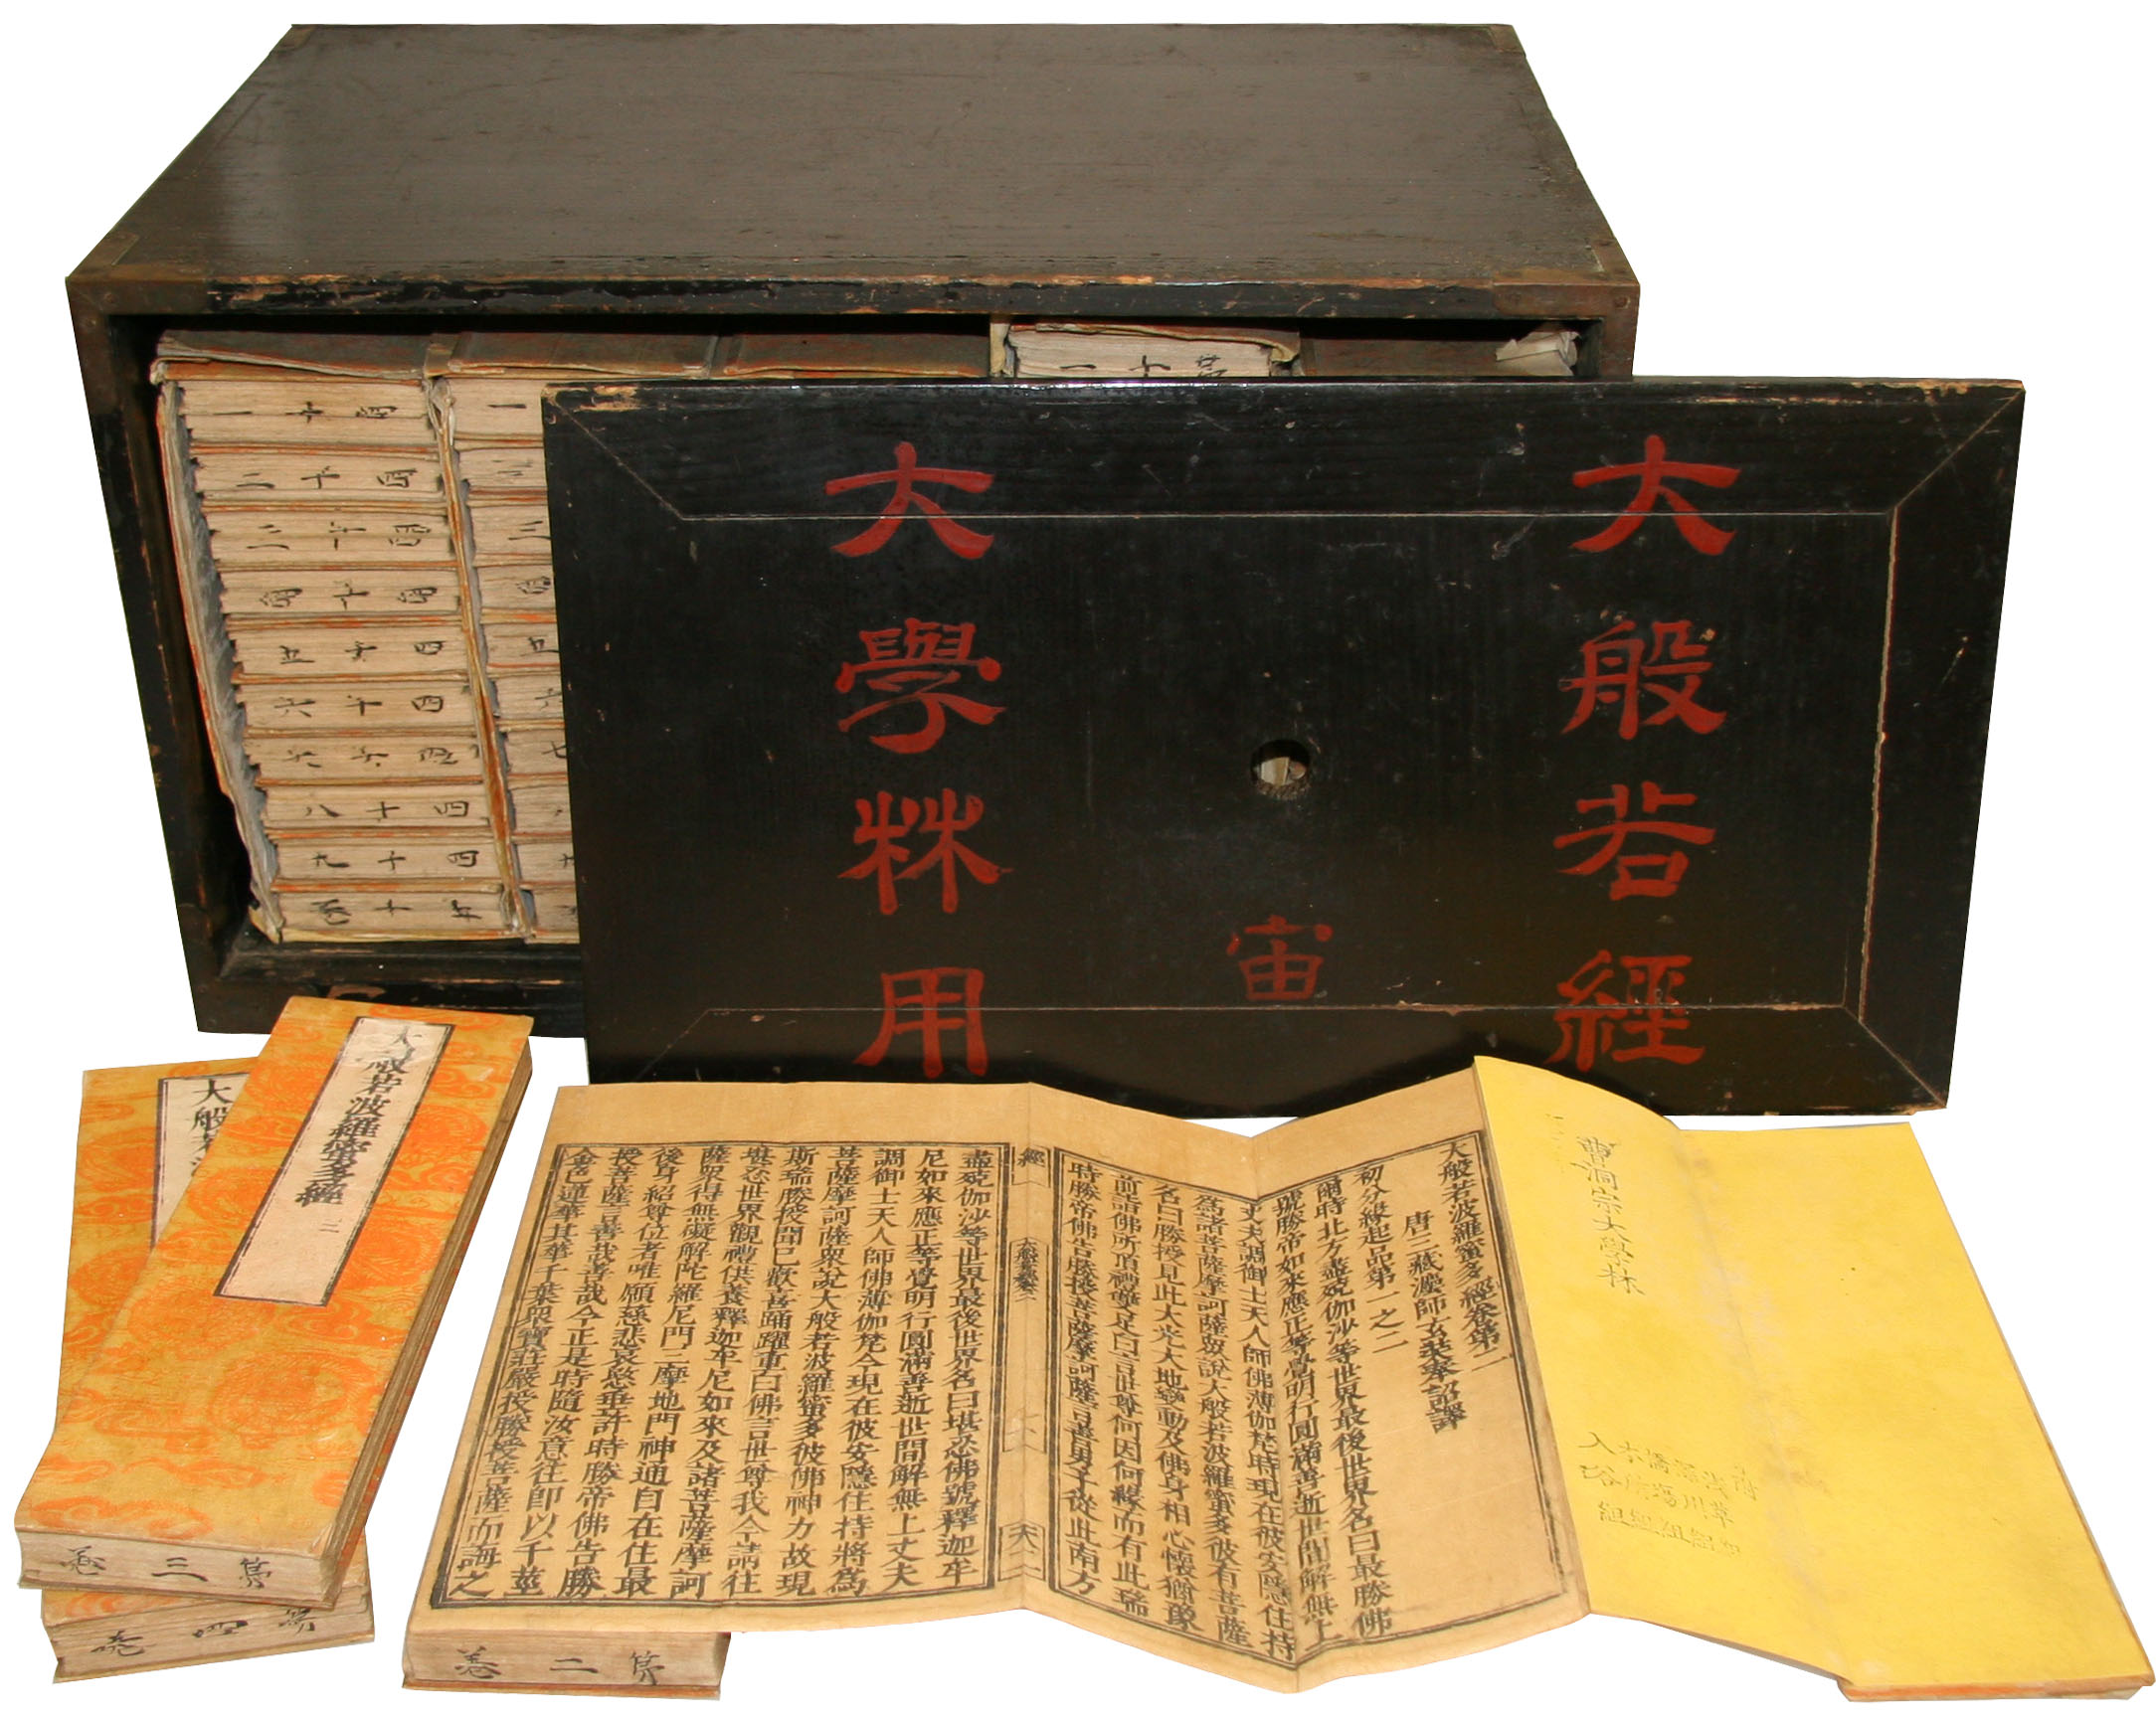 大般若經
宙
大學林用
一十四
二十四
三十四
四十四
五十四
六十四
八十四
九十四
一十
大般若波羅蜜多經 三
大般若波
卷三第
卷四第
卷二第
大般若波羅蜜多經卷第二
唐三藏灋師玄奘奉詔譯
初分緣起品第一之二
爾時北方盡殑伽沙等世界最後世界名曰最勝佛
號勝帝如來應正等覺明行圓滿善逝世間解無上
丈夫調御士天人師佛薄伽梵時現在彼安隱住持
爲諸菩薩摩訶薩衆說大般若波羅蜜多彼有菩薩
名曰勝授見此大光大地變動及佛身相心懷猶豫
前詣佛所頂禮雙足白言世尊何因何緣而有此瑞
時勝帝佛告勝授菩薩摩訶薩言善男子從此南方
經
大般若經卷二
六二
盡殑伽沙等世界最後世界名曰堪忍佛號釋迦牟
尼如來應正等覺明行圓滿善逝世間解無上丈夫
調御士天人師佛薄伽梵今現在彼安隱住持將爲
菩薩摩訶薩衆說大般若波羅蜜多彼佛神力故現
斯瑞勝授聞已歡喜踊躍重白佛言世尊我今請往
堪忍世界觀禮供養釋迦牟尼如來及諸菩薩摩訶
薩衆得無礙解陀羅尼門三摩地門神通自在住最
後身紹尊位者唯願慈悲哀愍垂許時勝帝佛告勝
授菩薩言善哉善哉今正是時隨汝意往即以千莖
金色蓮華其華千葉衆寶莊嚴授勝授菩薩而誨之
曹洞宗大學林